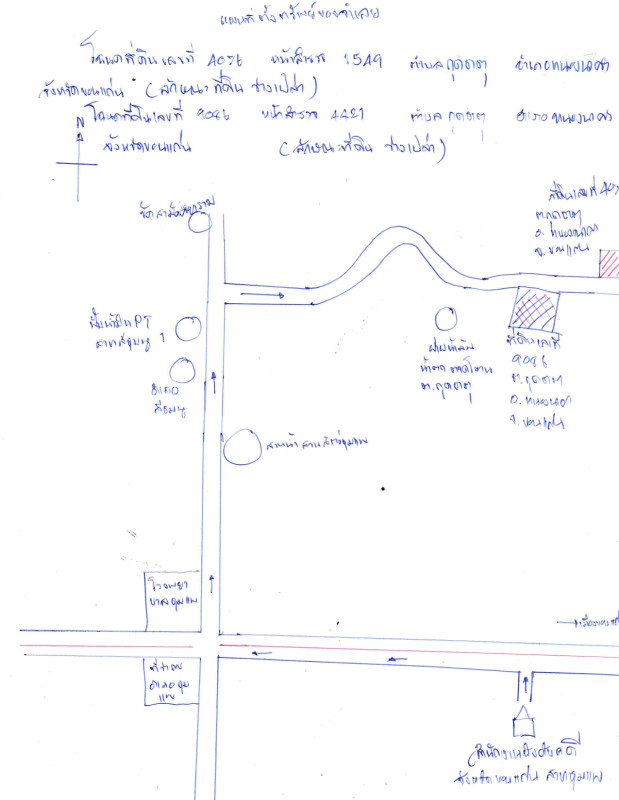 แผนที่ตั้งทรัพย์ของจำเลย
โฉนดที่ดินเลขที่ 4076 หน้าสำรวจ 1549 ตำบลกุดธาตุ อำเภอหนองนาคำ
จังหวัดขอนแก่น (ลักษณะที่ดิน ว่างเปล่า)
โฉนดที่ดินเลขที่ 9086 หน้าสำรวจ 4421 ตำบลกุดธาตุ อำเภอหนองนาคำ
N
จังหวัดขอนแก่น (ลักษณะที่ดิน ว่างเปล่า)
ที่ดินเลขที่ 407
ต.กุดธาตุ
อ.หนองนาคำ
จ.ขอนแก่น
วัด
ปั๊มน้ำมัน PT
สาขาสีชมพู 1
ที่ดินเลขที่
9086
ต.กุดธาตุ
อ.หนองนาคำ
จ.ขอนแก่น
น้ำตก ตาดโตน
ต.กุดธาตุ
อำเภอ
สีชมพู
โรงพยา
บาลชุมแพ
ที่ว่าการ
อำเภอชุม
แพ
สำนักงานบังคับคดี
จังหวัดขอนแก่น สาขาชุมแพ